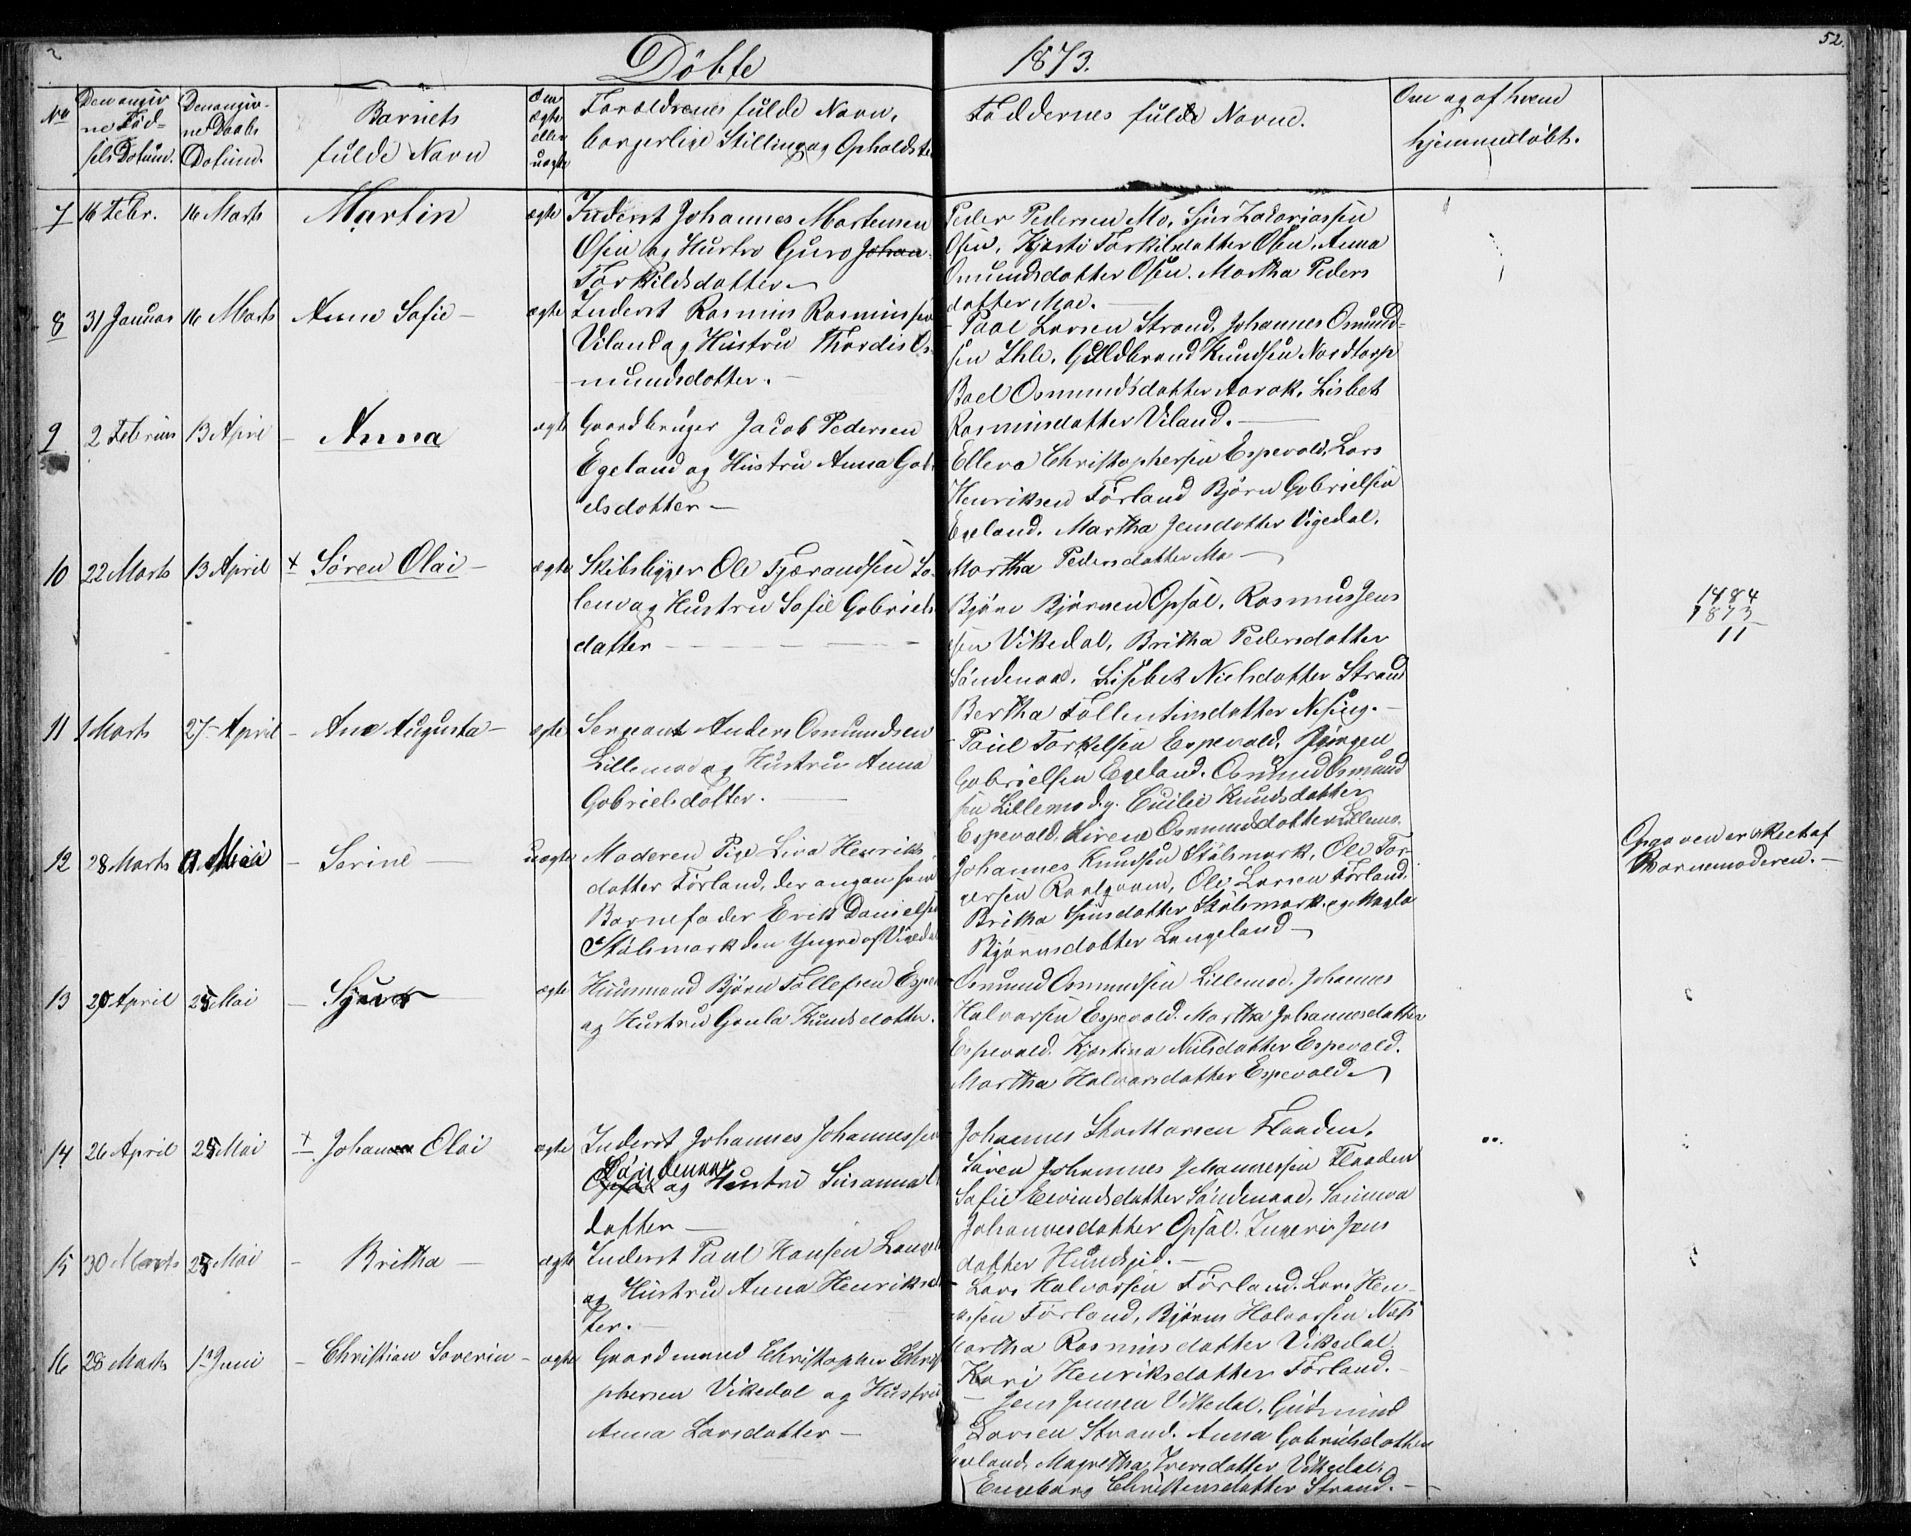 Döbte 1873.
52.
No
Den angivne Födsels Datum.
Den angivne Daabs Datum.
Barnets fulde Navn
Om ægte eller uægte
Forældrenes fulde Navn, borgerlige Stilling og Opholdste
Faddernes fulde Navne.
Om og af hvem hjemmedöbt.
7 16 Febr. 16 Marts Martin ægte Inderst Johannes Mortensen
Osen og Hustru Guro Johan
Torkildsdatter
Peder Pedersen Mo, Sjur Zakariassen
Osen, Kjersti Torkilsdatter Osen, Anna
Omundsdatter Osen. Martha Peders
datter Moe.
8 31 Januar 16 Marts Anne Sofie ægte Inderst Rasmus Rasmussen
Viland og Hustru Thordis Os
mundsdatter.
Paal Larsen Strand, Johannes Osmund-
sen Ihle, Guldbrand Knudsen Nordtorp
Boel Osmundsdatter Aarak, Lisbet
Rasmusdatter Viland.
9 2 Februar 13 April Anna ægte Gaardbruger Jacob Pedersen
Egeland og Hustru Anna Gabri
elsdatter
Ellern Christophersen Espevold, Lars
Henriksen Førland Bjørn Gabrielsen
Egeland. Martha Jensdatter Vigedal,
Martha Pedersdatter Mo
10 22 Marts 13 April + Søren Olai ægte Skibsbygger Ole Tjærandsen So-
lem og Hustru Sofie Gabriels
datter
Bjørn Bjørnsen Opsal, Rasmus Jens
sen Vikedal, Britha Pedersdatter
Søndenaa, Lisebet Nielsdatter Strand
Bertha Follentinsdatter
1484
1873
11
11 1 Marts 27 April Ane Augusta ægte Sergeant Anders Osmundsen
Lillemo og Hustru Anna
Gabrielsdatter.
Paul Torkelsen Espevold, Bjørgen
Gabrielsen Egeland. Osmund Osmund
sen Lillemo og Cicilie Knudsdatter
Espevold, Sirene Osmundsdatter Lillemo.
12 28 Marts Mai Serine uægte Moderen Pige Liva Henriks
datter Førland, der angav som
Barnefader Erik Danielsen
Stølsmark den Yngre af Vigedal
Johannes Knudsen Stølsmark, Ole Tor-
gersen, Ole Larsen Førland
Britha Sjursdatter Stølsmark og Magla
Bjørnsdatter Langeland
Opgaven er skeet af
Barnemoderen.
13 20 April 25 Mai Sjur ægte Huusmand Bjørn Tollefsen Espe
og Hustru Gunla Knudsdatter.
Osmund Osmundsen Lillemoe. Johannes
Halvorsen Espevold. Martha Johannesdatter
Espevold. Kjerstina Nielsdatter Espevold.
Martha Halvorsdatter Espevold
14 26 April 25 Mai + Johan Olai ægte Inderst Johannes Johannessen
Søndenaa
og Hustru Susanna
datter
Johannes Flaaden.
Søren Johannes Johannessen Flaaden
Sofie Eivindsdatter Søndenaa,
Johannesdatter Opsal. Ingeri Jens
datter
15 30 Marts 25 Mai Britha ægte Inderst Paul Hansen Lange
og Hustru Anna Henriksdat
ter.
Lars Halvorsen Førland. Lars Hen-
riksen Førland, Bjørn Halvorsen Næs
Martha Rasmusdatter Vikedal
Kari Henriksdatter Førland.
16 28 Marts 1 Juni Christian Severin ægte Gaardmand Christopher Christ
phersen Vikedal og Hustru
Anna Larsdatter
Jens Jensen Vikedal, Gudmund
Larsen Strand. Anna Gabrielsdatter
Egeland, Magretha Iversdatter Vikedal.
Engeborg Christensdatter Strand.